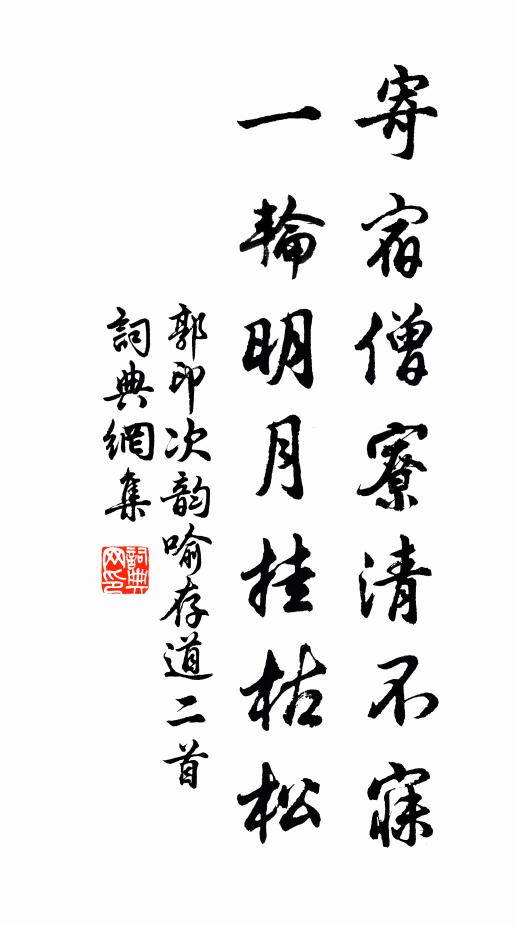 寄宿僧寮清不寐
一輪明月挂枯松
郭印次韵喻存道二首
詞典網集
詞典网印